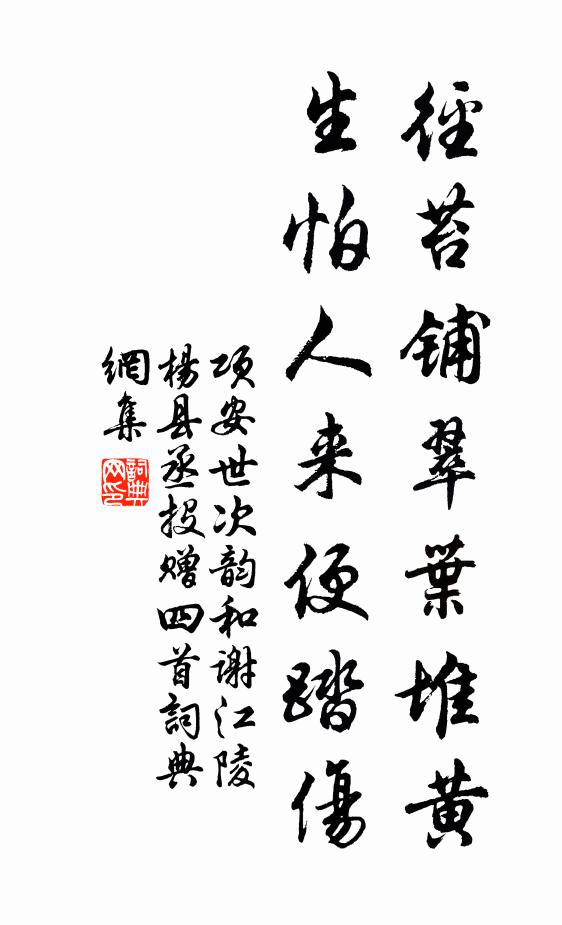 徑苔鋪翠葉堆黄
生怕人来便踏傷
项安世次韵和谢江陵
楊县丞投赠四首詞典
網集
詞典网印